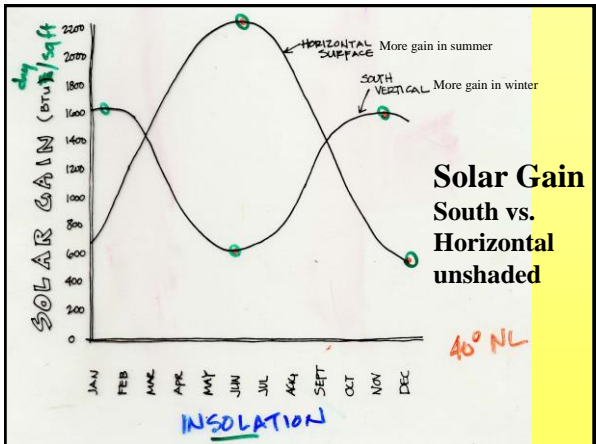 SOLAR GAIN (BTU/sqft
day
2200
2000
1800
1600
1400
1200
1000
800
600
400
200
0
HORIZONTAL
SURFACE
More gain in summer
SOUTH
VERTICAL
More gain in winter
Solar Gain
South vs.
Horizontal
unshaded
40° NL
JAN
FEB
MAR
APR
MAY
JUN
JUL
AUG
SEPT
OCT
NOV
DEC
INSOLATION